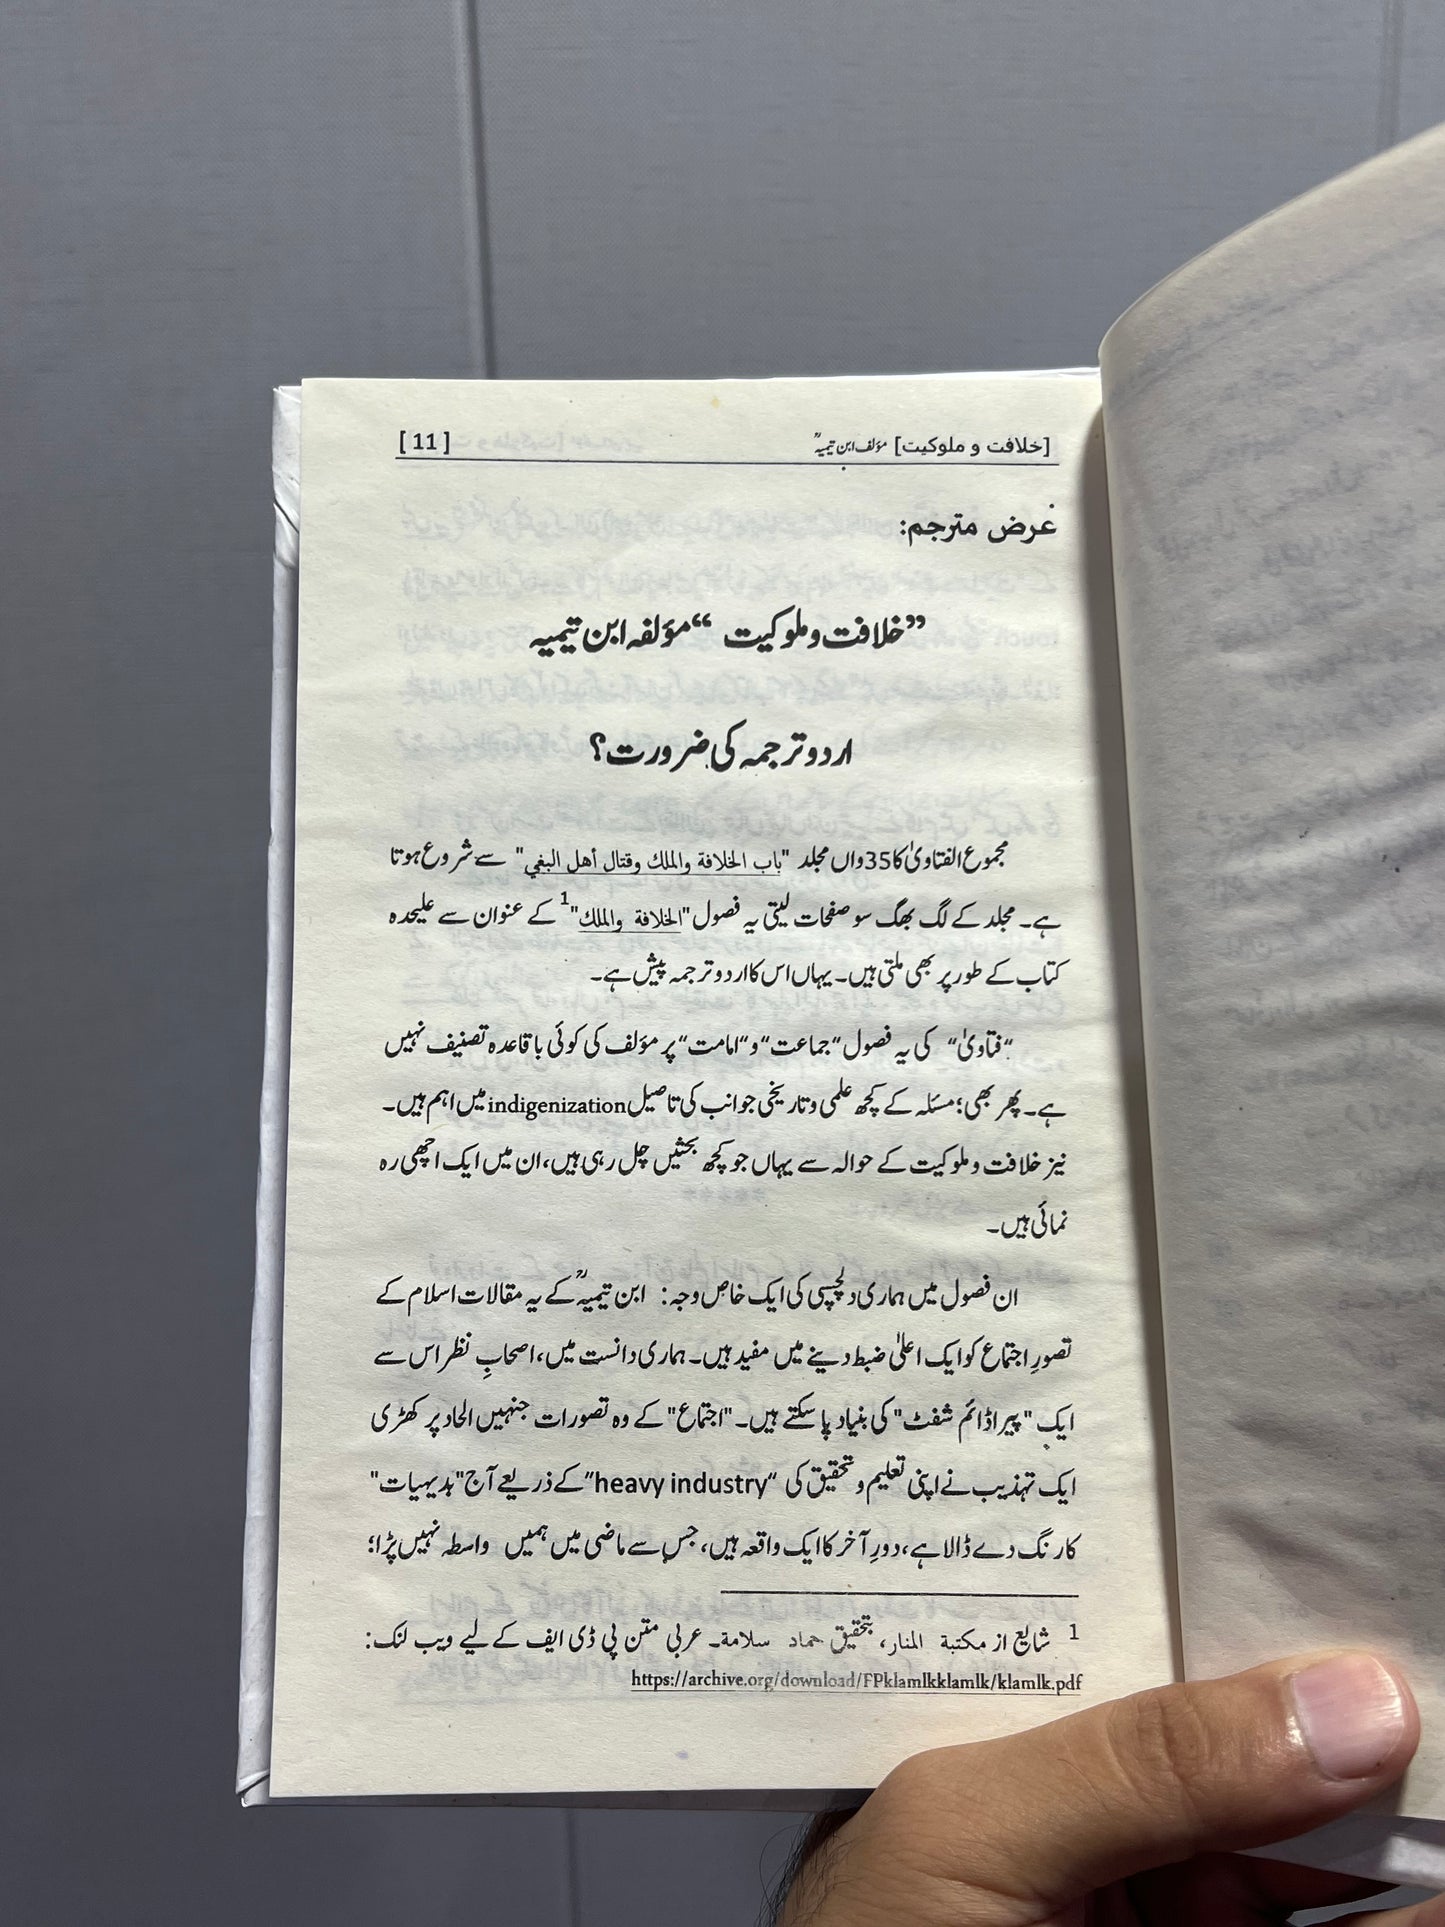 [خلافت و ملوکیت] مؤلف ابن تیمیہؒ [11]
عرض مترجم:
”خلافت و ملوکیت“ مؤلفہ ابن تیمیہ
اردو ترجمہ کی ضرورت؟
مجموع الفتاویٰ کا 35واں مجلد "باب الخلافة والملك وقتال أهل البغي" سے شروع ہوتا
ہے۔ مجلد کے لگ بھگ سو صفحات لیتی یہ فصول "الخلافة والملك"1 کے عنوان سے علیحدہ
کتاب کے طور پر بھی ملتی ہیں۔ یہاں اس کا اردو ترجمہ پیش ہے۔
”فتاویٰ“ کی یہ فصول ”جماعت“ و ”امامت“ پر مؤلف کی کوئی باقاعدہ تصنیف نہیں
ہے۔ پھر بھی؛ مسئلہ کے کچھ علمی و تاریخی جوانب کی تاصیل indigenization میں اہم ہیں۔
نیز خلافت و ملوکیت کے حوالہ سے یہاں جو کچھ بحثیں چل رہی ہیں، ان میں ایک اچھی رہ
نمائی ہیں۔
ان فصول میں ہماری دلچسپی کی ایک خاص وجہ: ابن تیمیہؒ کے یہ مقالات اسلام کے
تصورِ اجتماع کو ایک اعلیٰ ضبط دینے میں مفید ہیں۔ ہماری دانست میں، اصحابِ نظر اس سے
ایک "پیراڈائم شفٹ" کی بنیاد پا سکتے ہیں۔ "اجتماع" کے وہ تصورات جنہیں الحاد پر کھڑی
ایک تہذیب نے اپنی تعلیم و تحقیق کی ”heavy industry“ کے ذریعے آج "بدیہیات"
کا رنگ دے ڈالا ہے، دورِ آخر کا ایک واقعہ ہیں، جس سے ماضی میں ہمیں واسطہ نہیں پڑا؛
1 شایع از مكتبة المنار، بتحقیق حماد سلامة۔ عربی متن پی ڈی ایف کے لیے ویب لنک:
https://archive.org/download/FPklamlkklamlk/klamlk.pdf